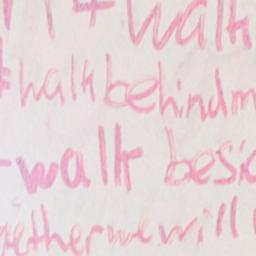 walk
walk behind m
walk besi
gether we will